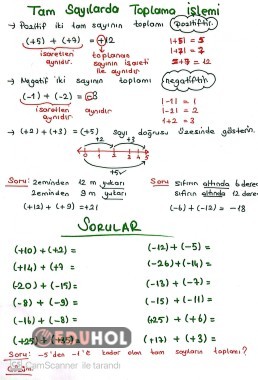 Tam Sayılarda Toplama işlemi
→ Pozitif iki tam sayının toplamı pozitiftir.
(+5) + (+7) = +12
işaretleri aynıdır.
toplanan sayının işareti ile aynıdır
|+5| = 5
|+7| = 7
5+7 = 12
→ Negatif iki sayının toplamı negatiftir.
(-1) + (-2) = -3
işaretleri aynıdır.
|-1| = 1
|-2| = 2
1+2 = 3
→ (+2) + (+3) = (+5) sayı doğrusu üzerinde gösterin.
+2 +3
0 1 2 3 4 5
+5
Soru: Zeminden 12 m yukarı
Zeminden 9 m yukarı
(+12) + (+9) = +21
Soru: Sıfırın altında 6 derece
Sıfırın altında 12 derece
(-6) + (-12) = -18
SORULAR
(+10) + (+2) =
(+14) + (+9 =
(-20) + (-15) =
(-8) + (-9) =
(-16) + (-8) =
(+25) + (+35) =
(-12) + (-5) =
(-26) + (-14) =
(-13) + (-7) =
(-15) + (-11) =
(+25) + (+6) =
(+17) + (+3) =
EDUHOL
Soru: -5'den -1'e kadar olan tam sayıların toplamı?
CamScanner ile tarandı